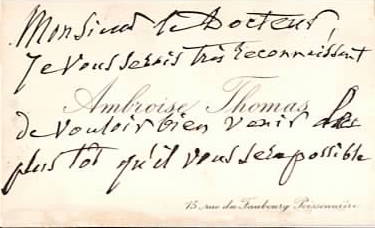 Monsieur le Docteur,
Je vous serais très reconnaissant
Ambroise Thomas
de vouloir bien venir le
plus tôt qu'il vous sera possible
15, rue du Faubourg Poissonnière